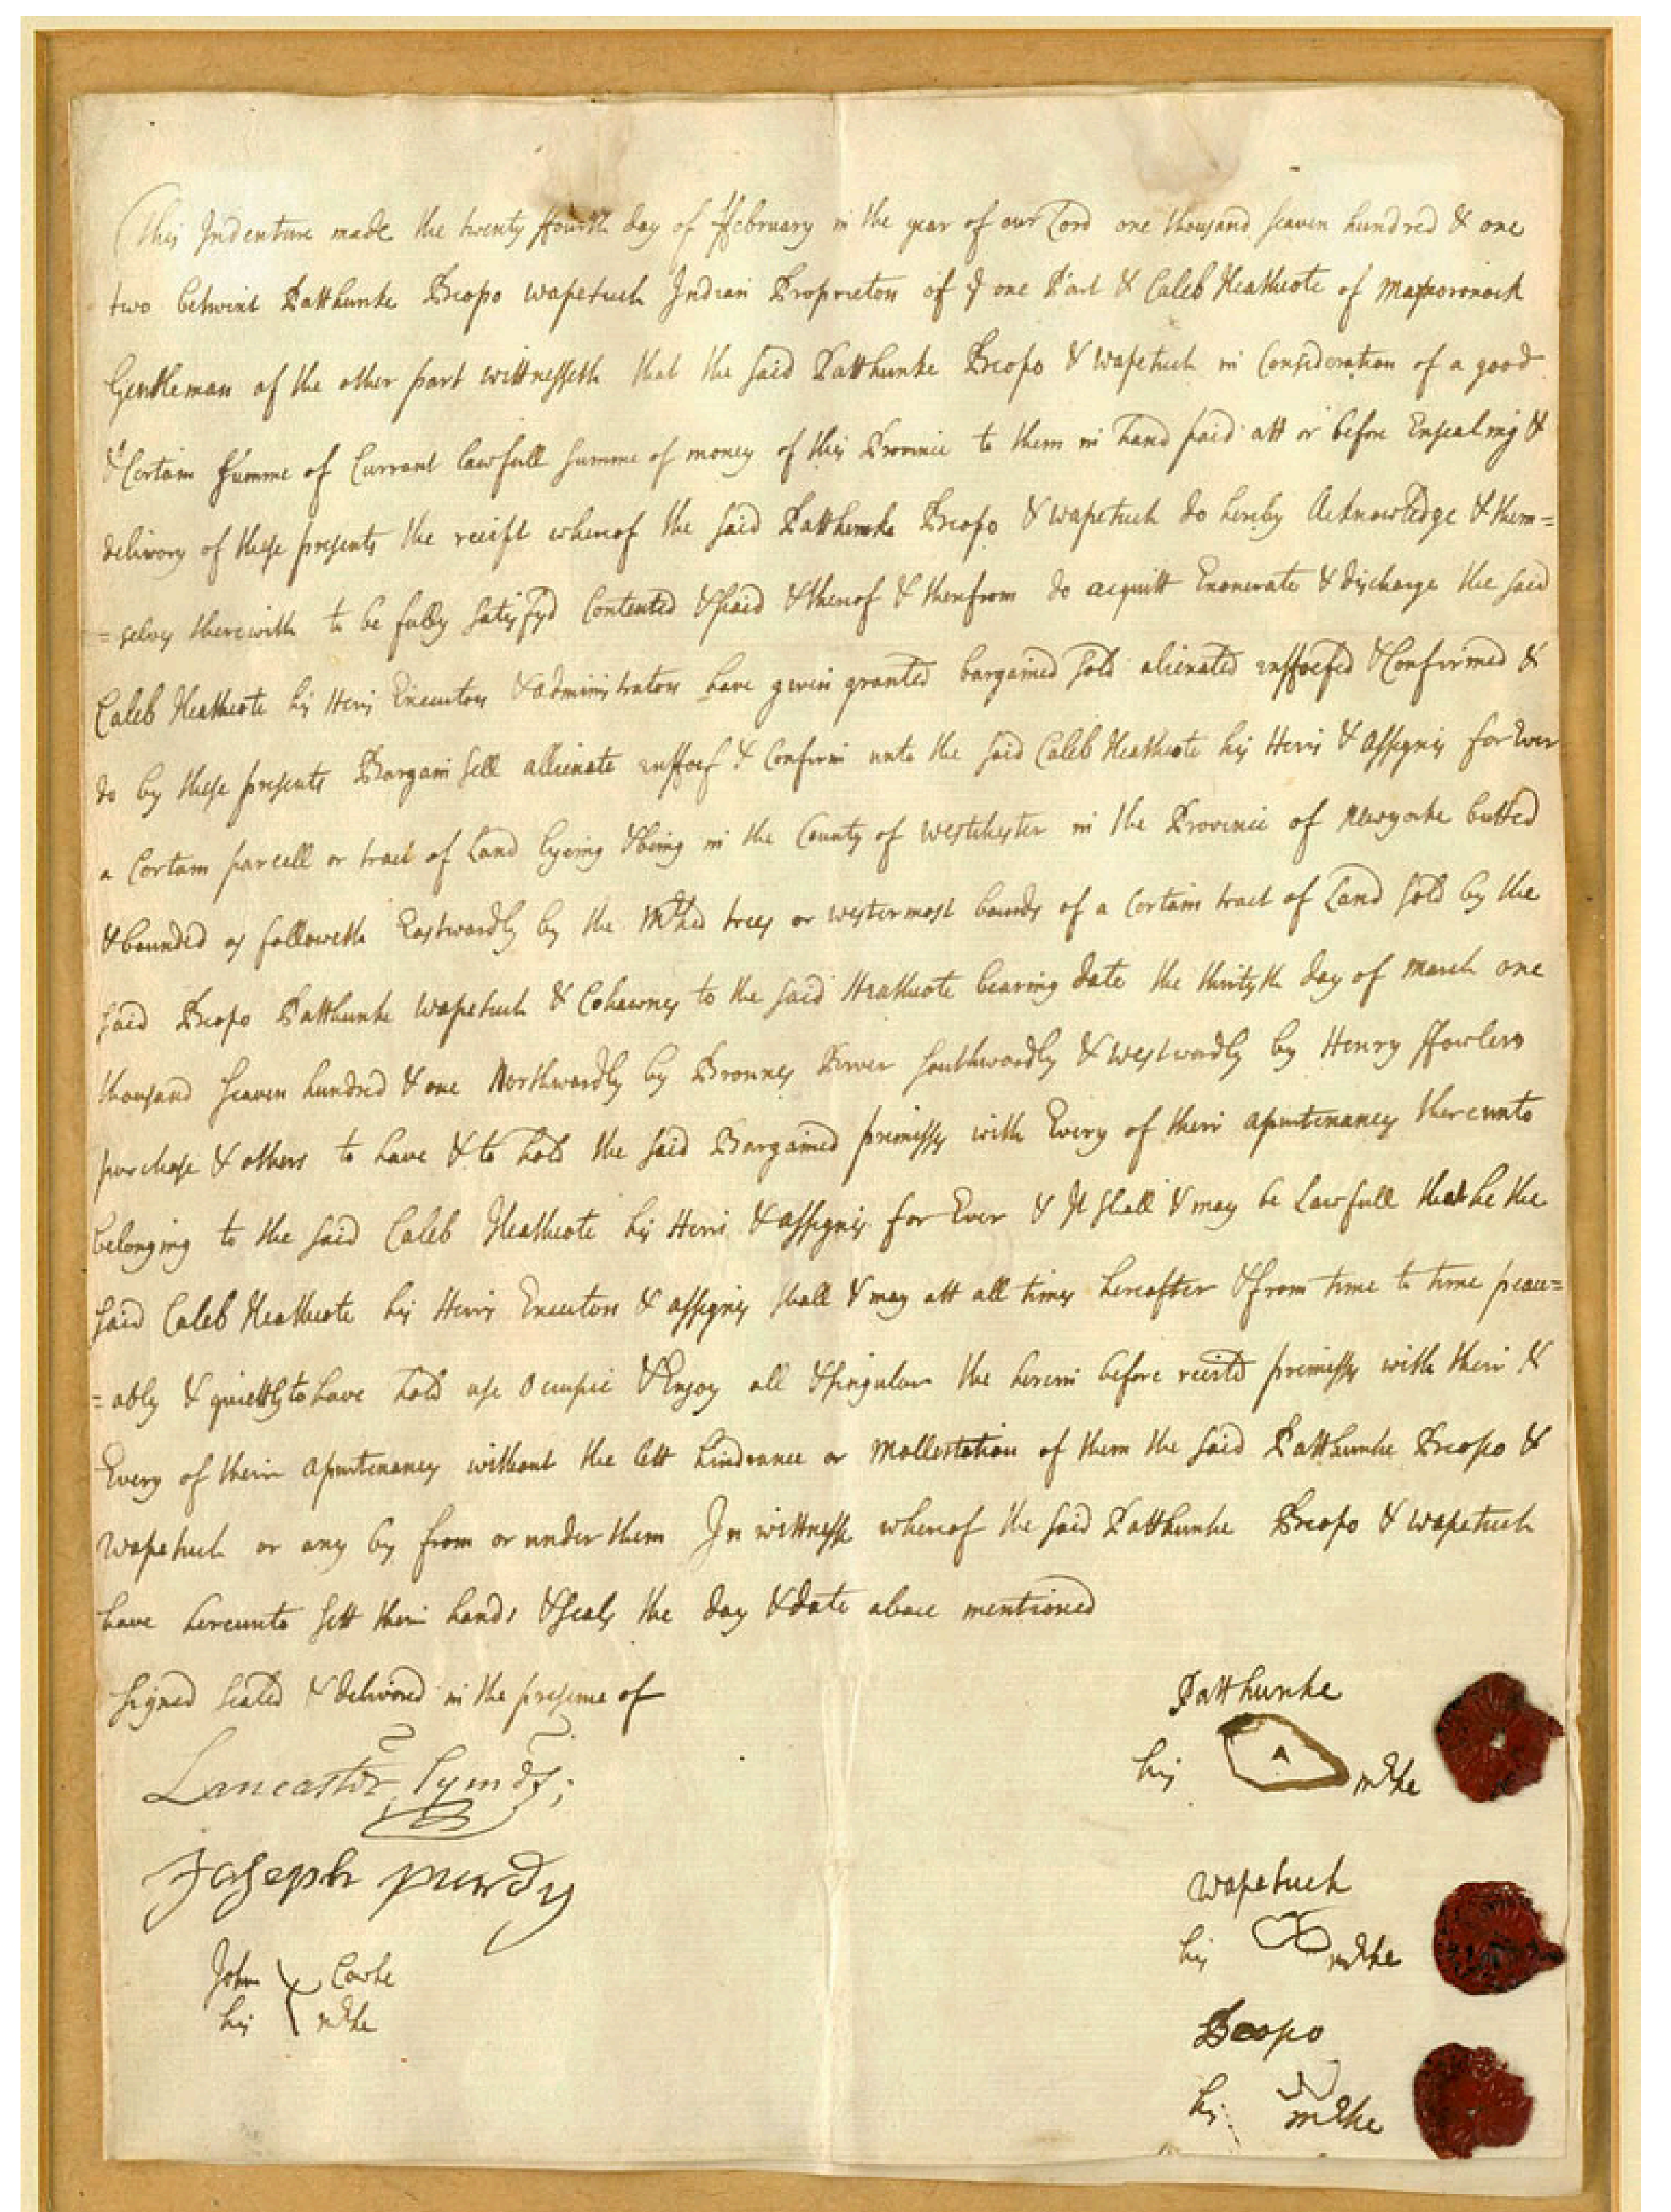 This Indenture made the twenty ffourth day of ffebruary in the year of our Lord one thousand seaven hundred & one
two betwixt Patthunke Beopo wapetuck Indian Proprietors of ye one Part & Caleb Heathcote of Mamoronack
Gentleman of the other part wittnesseth that the said Patthunke Beopo & wapetuck in Consideration of a good
& Certain Summe of Currant lawfull summe of money of this Province to them in hand paid att or before Ensealing &
delivory of these presents the receipt whereof the said Patthunke Beopo & wapetuck do hereby Acknowledge & them=
=selves therewith to be fully satisfyd Contented & paid & thereof & therefrom do acquitt Exonerate & discharge the said
Caleb Heathcote his Heirs Executors & administrators have given granted bargained sold alienated enffoefed & Confirmed &
do by these presents Bargain sell allienate enffoef & Confirm unto the said Caleb Heathcote his Heirs & assignes for Ever
a Certain parcell or tract of Land lyeing & being in the County of westchester in the Province of Newyorke butted
& bounded as followeth Eastwardly by the mrked trees or westermost bounds of a Certain tract of Land sold by the
said Beopo Patthunke wapetuck & Cohawney to the said Heathcote bearing date the thirtyth day of march one
thousand seaven hundred & one Northwardly by Bronxes River southwardly & westwardly by Henry ffowlers
purchase & others to have & to hold the said Bargained premisses with Every of their apurtinances thereunto
belonging to the said Caleb Heathcote his Heirs & assignes for Ever & It shall & may be Lawfull that he the
said Caleb Heathcote his Heirs Executors & assignes shall & may att all times hereafter & from time to time peace=
=ably & quiettly to have hold use Ocupie & Enjoy all & singular the herein before recited premisses with their &
Every of their apurtinances without the lett hindrance or Mollestation of them the said Patthunke Beopo &
wapetuck or any by from or under them In wittnesse whereof the said Patthunke Beopo & wapetuck
have hereunto sett their hands & seals the day & date above mentioned
Signed sealed & delivored in the presence of
Patthunke
his mrke
Lancaster Symes;
Joseph purdy
wapetuck
his mrke
John Cooke
his mrke
Beopo
his mrke